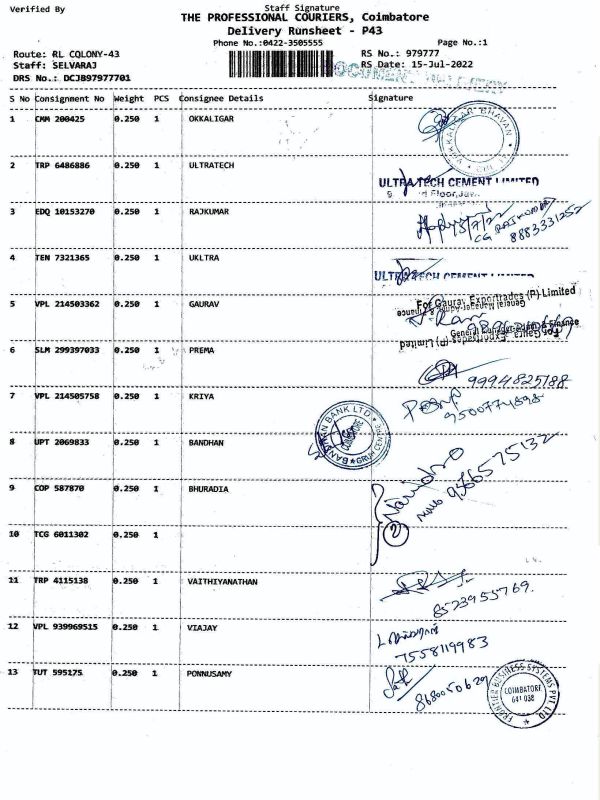 Verified By Staff Signature
THE PROFESSIONAL COURIERS, Coimbatore
Delivery Runsheet - P43
Phone No.:0422-3505555 Page No.:1
Route: RL COLONY-43 RS No.: 979777
Staff: SELVARAJ RS Date: 15-Jul-2022
DRS No.: DCJB97977701
S No Consignment No Weight PCS Consignee Details Signature
1 CMM 200425 0.250 1 OKKALIGAR
2 TRP 6486886 0.250 1 ULTRATECH
ULTRATECH CEMENT LIMITED
3 EDQ 10153270 0.250 1 RAJKUMAR
15/7/22
CG RAJKUMAR
8883331252
4 TEN 7321365 0.250 1 UKLTRA
ULTRATECH CEMENT LIMITED
5 VPL 214503362 0.250 1 GAURAV
For Gaurav Exportrades (P) Limited
General Manager-Admn & Finance
6 SLM 299397033 0.250 1 PREMA
9994825188
7 VPL 214505758 0.250 1 KRIYA
9500774898
BANDHAN BANK LTD.
COIMBATORE
8 UPT 2069833 0.250 1 BANDHAN
9566575132
9 COP 587870 0.250 1 BHURADIA
2
10 TCG 6011302 0.250 1
11 TRP 4115138 0.250 1 VAITHIYANATHAN
8523955769.
12 VPL 939969515 0.250 1 VIAJAY
7558119983
13 TUT 595175 0.250 1 PONNUSAMY
8680050629
FRONTIER BUSINESS SYSTEMS PVT. LTD
COIMBATORE
641 038